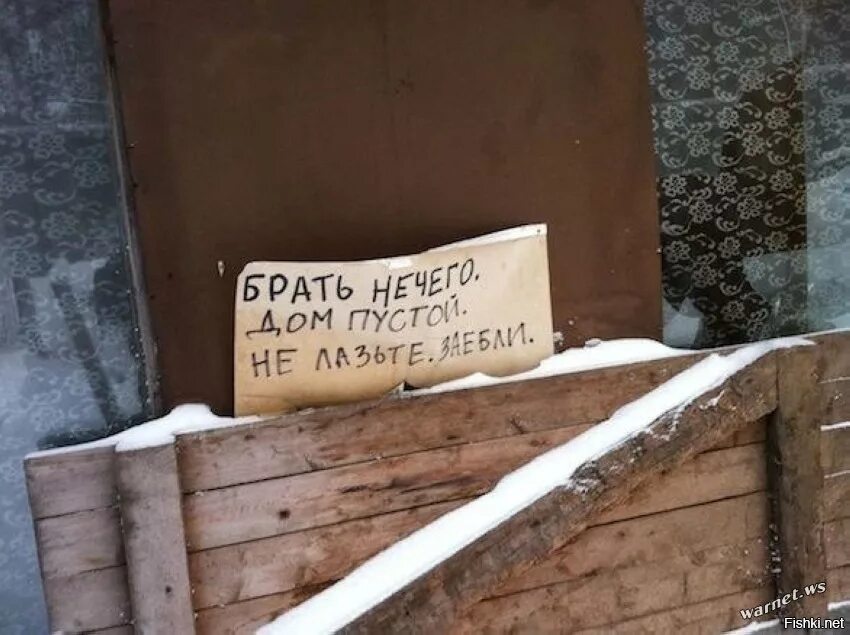 БРАТЬ НЕЧЕГО.
ДОМ ПУСТОЙ.
НЕ ЛАЗЬТЕ. ЗАЕБЛИ.
warnet.ws
Fishki.net